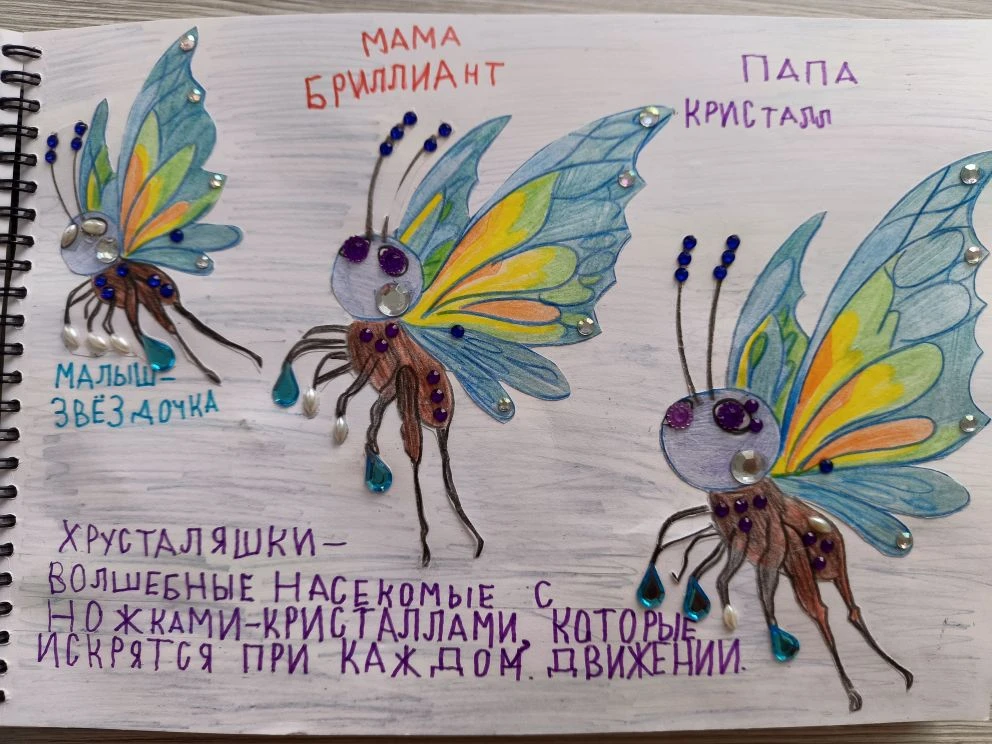 МАМА
БРИЛЛИАНТ
ПАПА
КРИСТАЛЛ
МАЛЫШ-
ЗВЁЗДОЧКА
ХРУСТАЛЯШКИ-
ВОЛШЕБНЫЕ НАСЕКОМЫЕ С
НОЖКАМИ-КРИСТАЛЛАМИ, КОТОРЫЕ
ИСКРЯТСЯ ПРИ КАЖДОМ. ДВИЖЕНИИ.